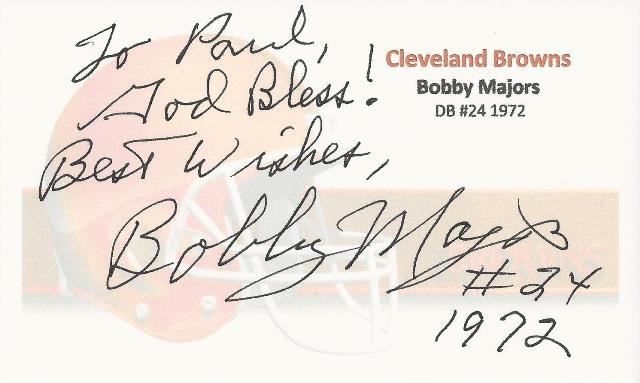 To Paul,
God Bless!
Best Wishes,
Bobby Majors
#24
1972
Cleveland Browns
Bobby Majors
DB #24 1972
BROWNS